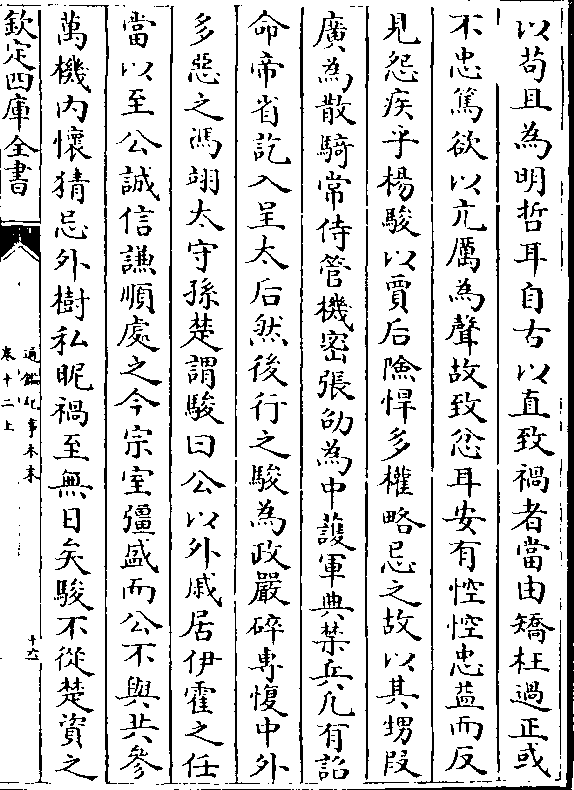 以苟且為明哲耳自古以直致禍者當由矯枉過正或
不忠篤欲以亢厲為聲故致忿耳安有悾悾忠益而反
見怨疾乎楊駿以賈后險悍多權略忌之故以其甥段
廣為散騎常侍管機密張劭為中護軍典禁兵凡有詔
命帝省訖入呈太后然後行之駿為政嚴碎専愎中外
多惡之馮翊太守孫楚謂駿曰公以外戚居伊霍之任
當以至公誠信謙順處之今宗室彊盛而公不與共參
萬機内懷猜忌外樹私昵禍至無日矣駿不從楚資之
欽定四庫全書
通鑑紀事本末
卷十二上
十六